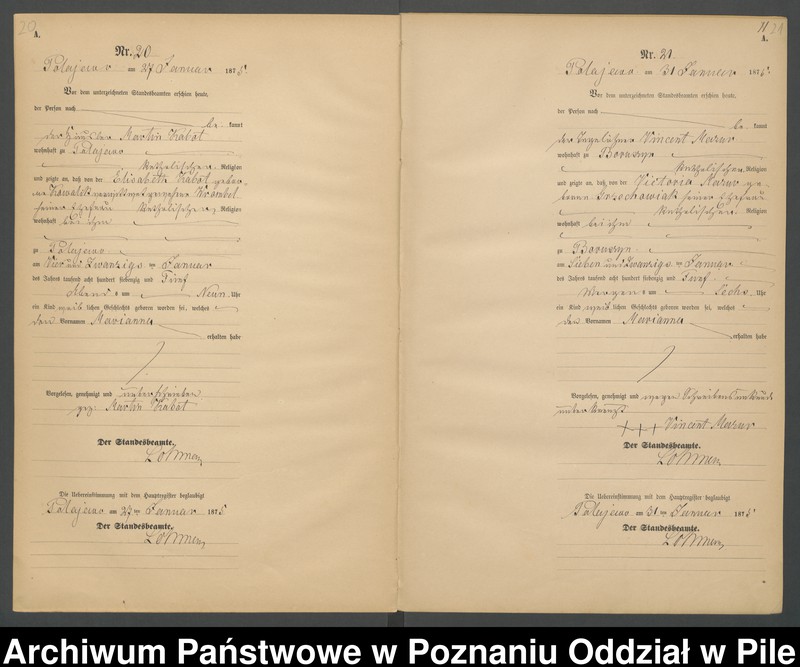 20
A.
Nr. 20
Polajewo am 27 Januar 1875.
Vor dem unterzeichneten Standesbeamten erschien heute,
der Person nach
be kannt
der Häusler Martin Kabat
wohnhaft zu Polajewo
katholischen Religion
und zeigte an, daß von der Elisabeth Kabat gebor-
ne Kowalek
seiner Ehefrau katholischen Religion
wohnhaft bei ihm
zu Polajewo
am Vier und Zwanzigs ten Januar
des Jahres tausend acht hundert siebenzig und Fünf
Abends um Neun Uhr
ein Kind weib lichen Geschlechts geboren worden sei, welches
den Vornamen Marianna
erhalten habe
Vorgelesen, genehmigt und unterschrieben.
gez. Martin Kabat
Der Standesbeamte.
Die Uebereinstimmung mit dem Hauptregister beglaubigt
Polajewo am 27 ten Januar 1875
Der Standesbeamte.
11 21
A.
Nr. 21
Polajewo am 31 Januar 1875.
Vor dem unterzeichneten Standesbeamten erschien heute,
der Person nach
be kannt
der Tagelöhner Vincent Mazur
wohnhaft zu Boruszyn
katholischen Religion
und zeigte an, daß von der Victoria Mazur ge-
borene Grzechowiak seiner Ehefrau
katholischen Religion
wohnhaft bei ihm
zu Boruszyn
am Sieben und Zwanzigs ten Januar
des Jahres tausend acht hundert siebenzig und Fünf
Morgens um Sechs Uhr
ein Kind weib lichen Geschlechts geboren worden sei, welches
den Vornamen Marianna
erhalten habe
Vorgelesen, genehmigt und wegen Schreibensunkunde
unterkreuzt
+++ Vincent Mazur
Der Standesbeamte.
Die Uebereinstimmung mit dem Hauptregister beglaubigt
Polajewo am 31 ten Januar 1875
Der Standesbeamte.
Archiwum Państwowe w Poznaniu Oddział w Pile